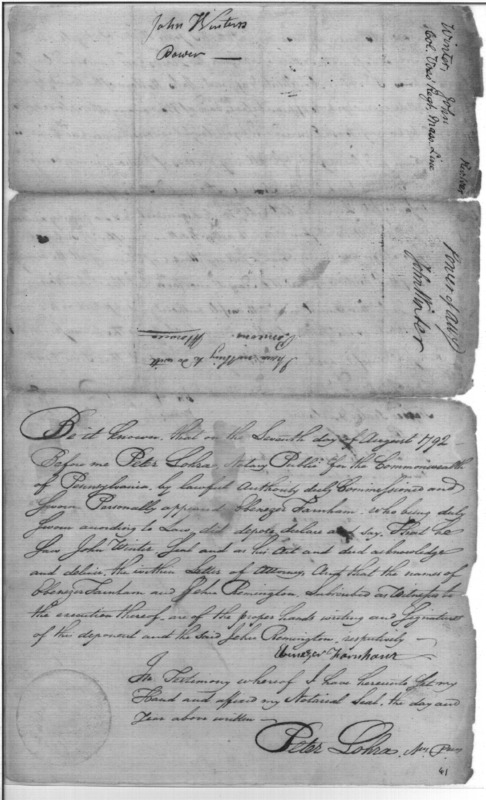 John Winters
Power
Winter, John
Col. Voses Regt. Mass. Line
Power of atty
John Winter
I have nothing to do with
Be it known, that on the Seventh day of August 1792
Before me Peter Lohra, Notary Public for the Commonwealth
of Pennsylvania, by lawful Authority duly Commissioned and
Sworn Personally appeared Ebenezer Farnham, who being duly
sworn according to Law, did depose declare and say, That he
Saw John Winter Seal and as his Act and deed acknowledge
and deliver the within Letter of Attorney, And that the names of
Ebenezer Farnham and John Remington, Subscribed as Witnesses to
the execution thereof are of the proper hands writing and Signatures
of the deponent and the said John Remington, respectively
Ebenezer Farnham
In Testimony whereof I have hereunto Set my
Hand and affixed my Notarial Seal, the day and
Year above written
Peter Lohra,
41